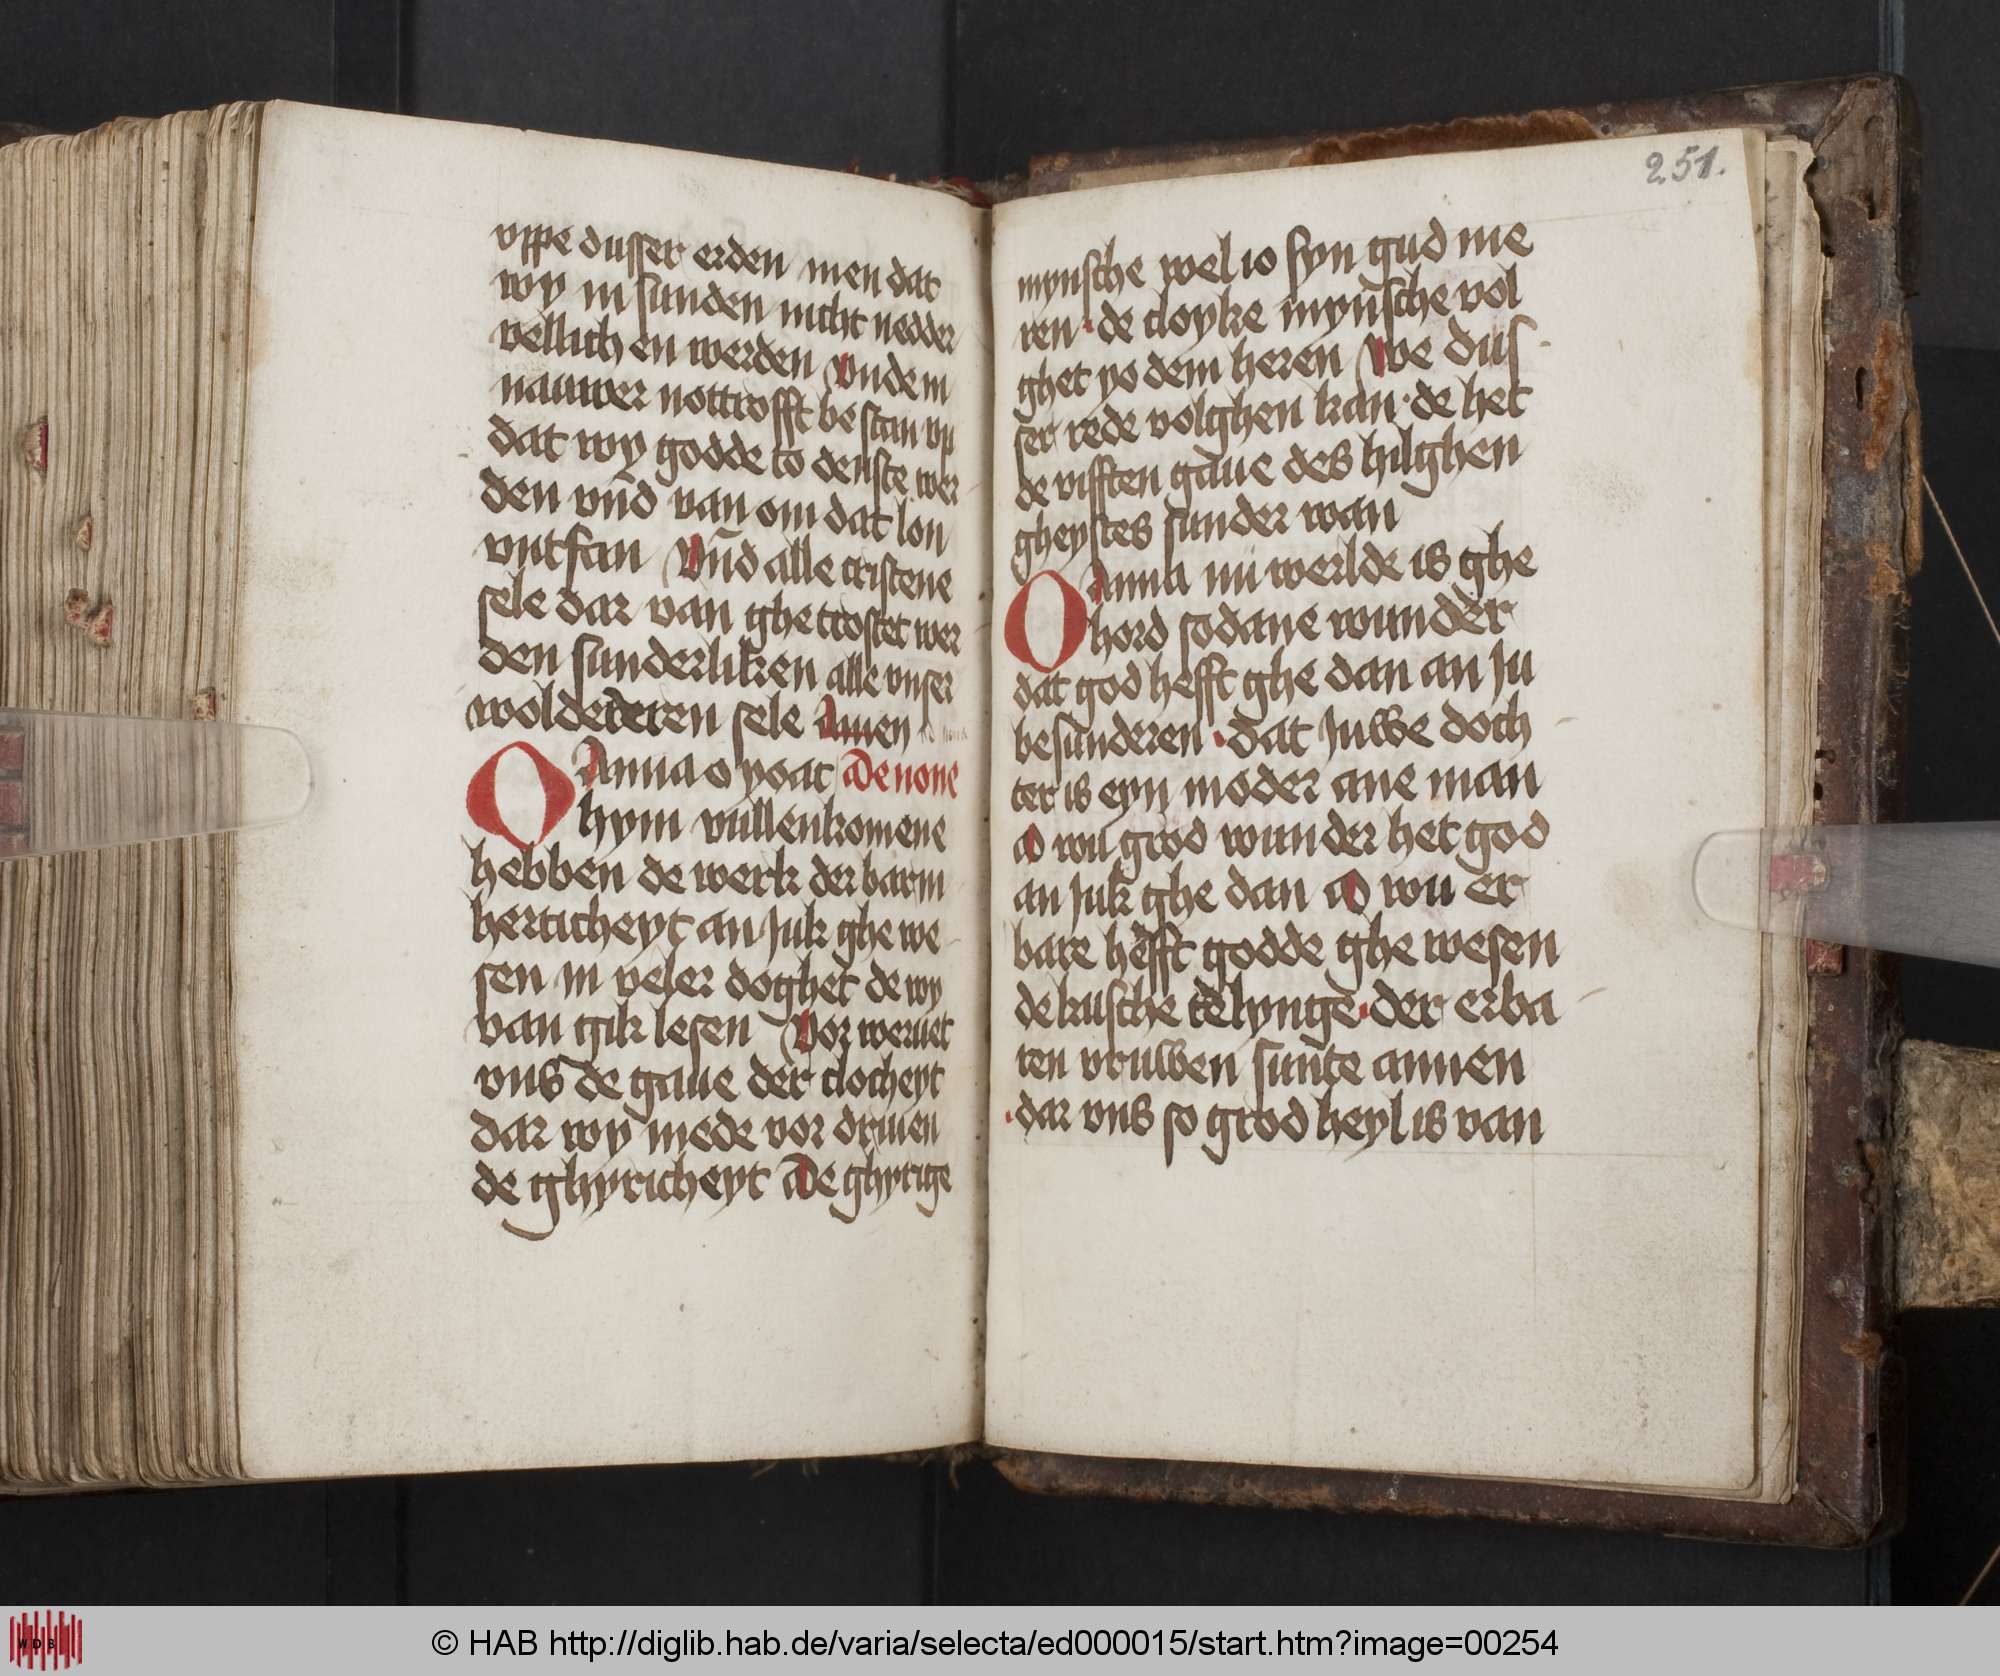 vppe dusser erden men dat
wy in sunden nicht nedder
vellich en werden vnde in
nauwer nottrofft bestan vp
dat wy godde to denste wer
den vn̄d van om dat lon
vntfan Vn̄d alle cristene
sele dar van ghetrostet wer
den sunderliken alle vnser
woldederen sele Amen
O Anna o yoat De none
hym vullenkomene
hebben de werk der barm
herticheyt an Juk ghe we
sen in veler doghet de wy
van gik lesen Vor weruet
vns de gaue der clocheyt
dar wy mede vor driuen
de ghyricheyt De ghyrige
251.
mynsche wel io syn gud me
ren · de cloyke mynsche vol
ghet yo dem heren We dus
ser rede volghen kan · de het
de vifften gaue des hilghen
gheystes sunder wan
O Anna nu werlde is ghe
hord sodane wunder
dat god hefft ghe dan an Ju
besunderen · dat Juwe doch
ter is eyn moder ane man
O wu grod wunder het god
an Juk ghe dan O wu er
bare hefft godde ghe wesen
de kusche telynge · der erba
ren vruwen sunte annen
· dar vns so grod heyl is van
WDB
© HAB http://diglib.hab.de/varia/selecta/ed000015/start.htm?image=00254